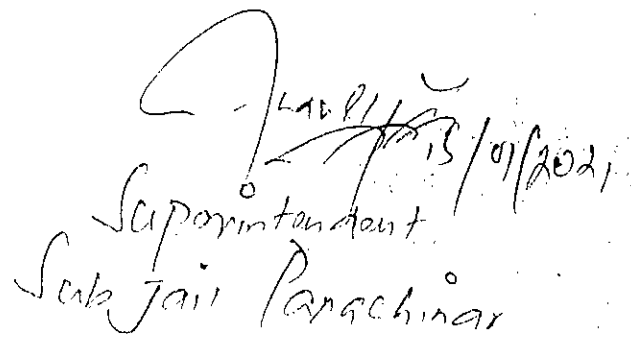 15/01/2021
Superintendent
Sub Jail Parachinar